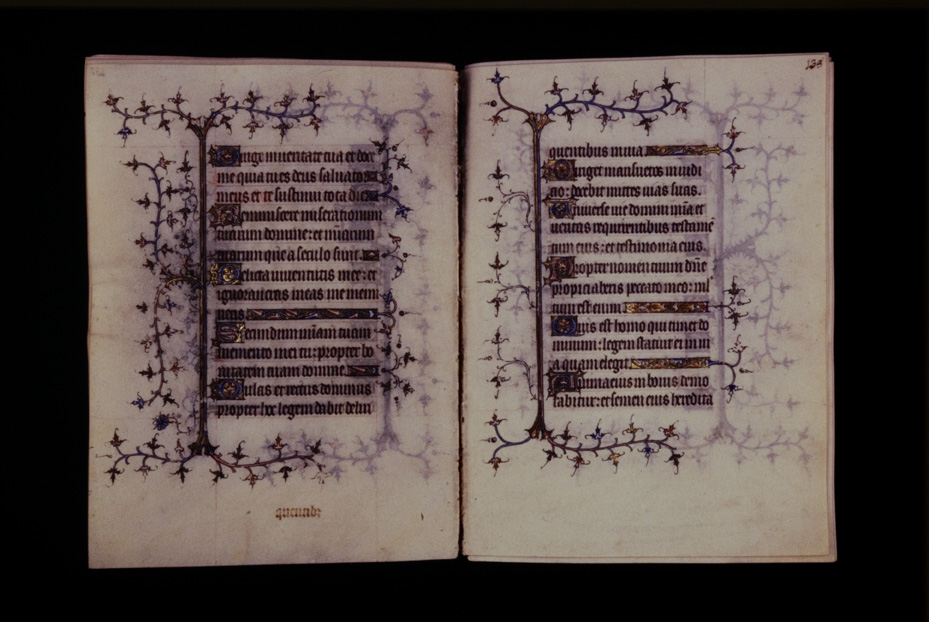 Dirige in veritate tua et doce
me quia tu es deus salvator
meus et te sustinui tota die
Reminiscere miserationum
tuarum domine: et miẜcđiarum
tuarum que a seculo sunt.
Delicta iuventutis mee: et
ignorancias meas ne memi
neris
Secundum miãm tuam
memento mei tu: propter bo
nitatem tuam domine.
Dulcis et rectus dominus
propter hoc legem dabit delin
quentibz
133
quentibus in via
Diriget mansuetos in iudi
cio: docebit mites vias suas.
Universe vie domini mĩa et
veritas requirentibus testamẽ
tum eius: et testimonia eius.
Propter nomen tuum dñe
propiciaberis peccato meo: ml̃
tum est enim
Quis est homo qui timet do
minum: legem statuit ei in vi
a quam elegit
Anima eius in bonis demo
rabitur: et semen eius heredita